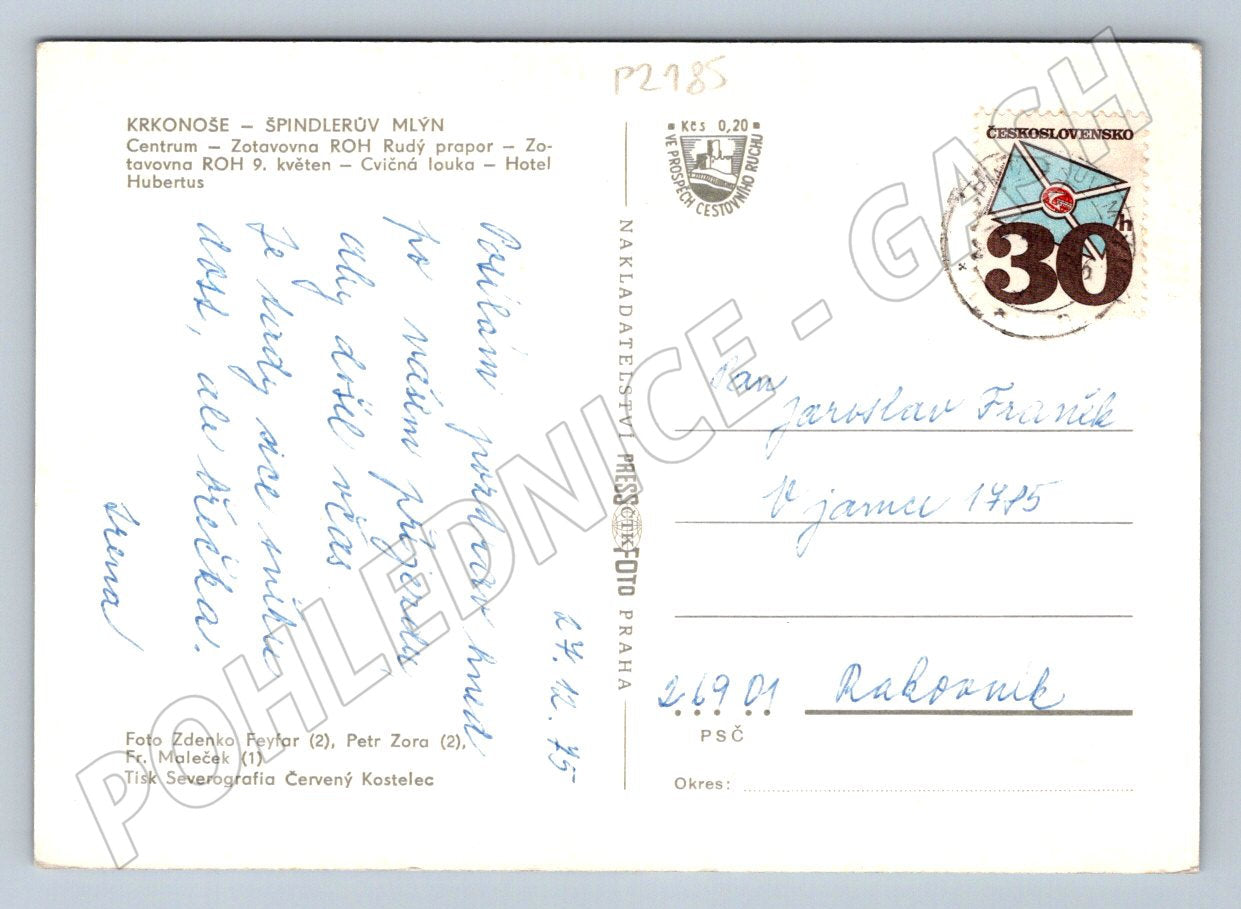 P2185
KRKONOŠE – ŠPINDLERŮV MLÝN
Centrum – Zotavovna ROH Rudý prapor – Zo-
tavovna ROH 9. květen – Cvičná louka – Hotel
Hubertus
Kčs 0,20
VE PROSPĚCH CESTOVNÍHO RUCHU
ČESKOSLOVENSKO
30 h
27. 12. 75
Posílám pozdrav hned
po našem příjezdu
aby došel včas.
Je tady sice sníh
dost, ale břečka.
Irena
NAKLADATELSTVÍ PRESSFOTO PRAHA
ČTK
Pan
Jaroslav Franěk
V jamce 1785
269 01 Rakovník
PSČ
Okres:
Foto Zdenko Feyfar (2), Petr Zora (2),
Fr. Maleček (1)
Tisk Severografia Červený Kostelec
POHLEDNICE - GASH